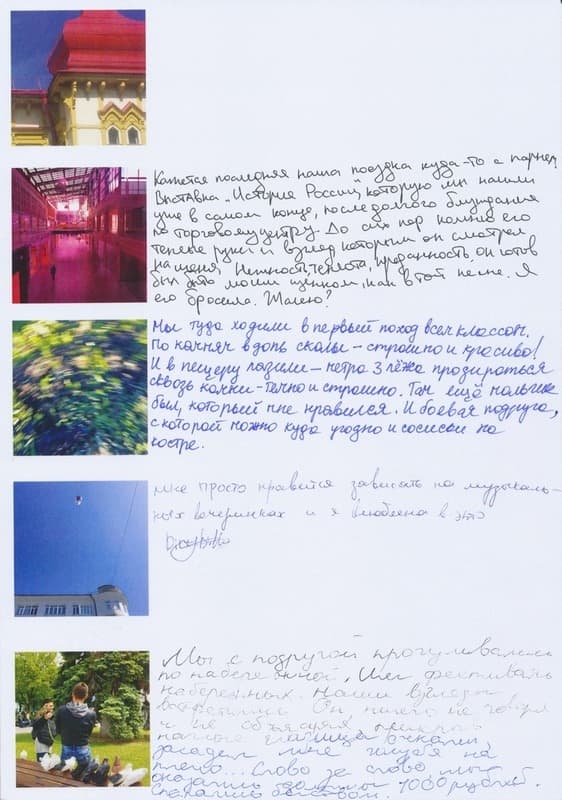 Кажется последняя наша поездка куда-то с парнем.
Выставка "История России", которую мы нашли
уже в самом конце, после долгого блуждания
по торговому центру. До сих пор помню его
теплые руки и взгляд которым он смотрел
на меня. Нежность, теплота, преданность, он готов
был быть моим щенком, как в той песне. Я
его бросила. Жалею?
Мы туда ходили в первый поход всем классом.
По камням вдоль скалы - страшно и красиво!
И в пещеру лазили - метра 3 лёжа продираться
сквозь камни - темно и страшно. Там ещё мальчик
был, который мне нравился. И боевая подруга,
с которой можно куда угодно и сосиски на
костре.
мне просто нравится зависать на музыкаль-
ных вечеринках и я влюблена в это
Мы с подругой прогуливались
по набережной. Шёл фестиваль
набережных. Наши взгляды
встретились. Он ничего не говоря
и не объясняя
посадил мне голубя на
плечо... Слово за слово мы
оказались должны 1000 рублей.
Спаслись бегством.